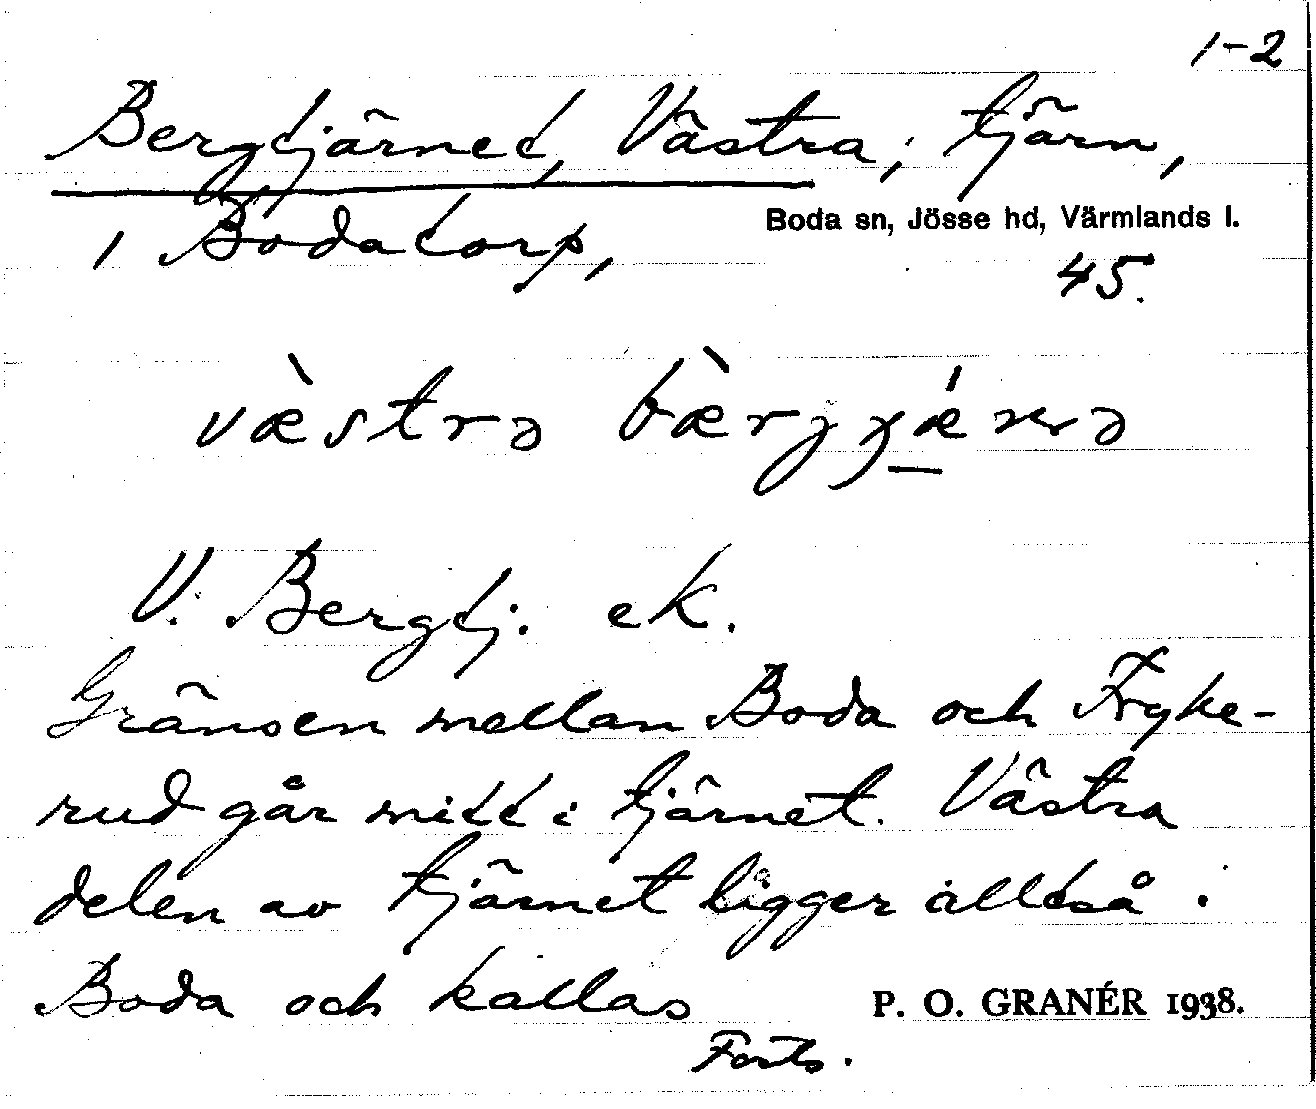 1-2
Bergtjärnet, Västra, tjärn,
i Bodatorp,
Boda sn, Jösse hd, Värmlands l.
45.
væ̀strə
V. Bergtj. ek.
Gränsen mellan Boda och Fryke-
rud går mitt i tjärnet. Västra
delen av tjärnet ligger alltså i
Boda och kallas
P. O. GRANÉR 1938.
Forts.